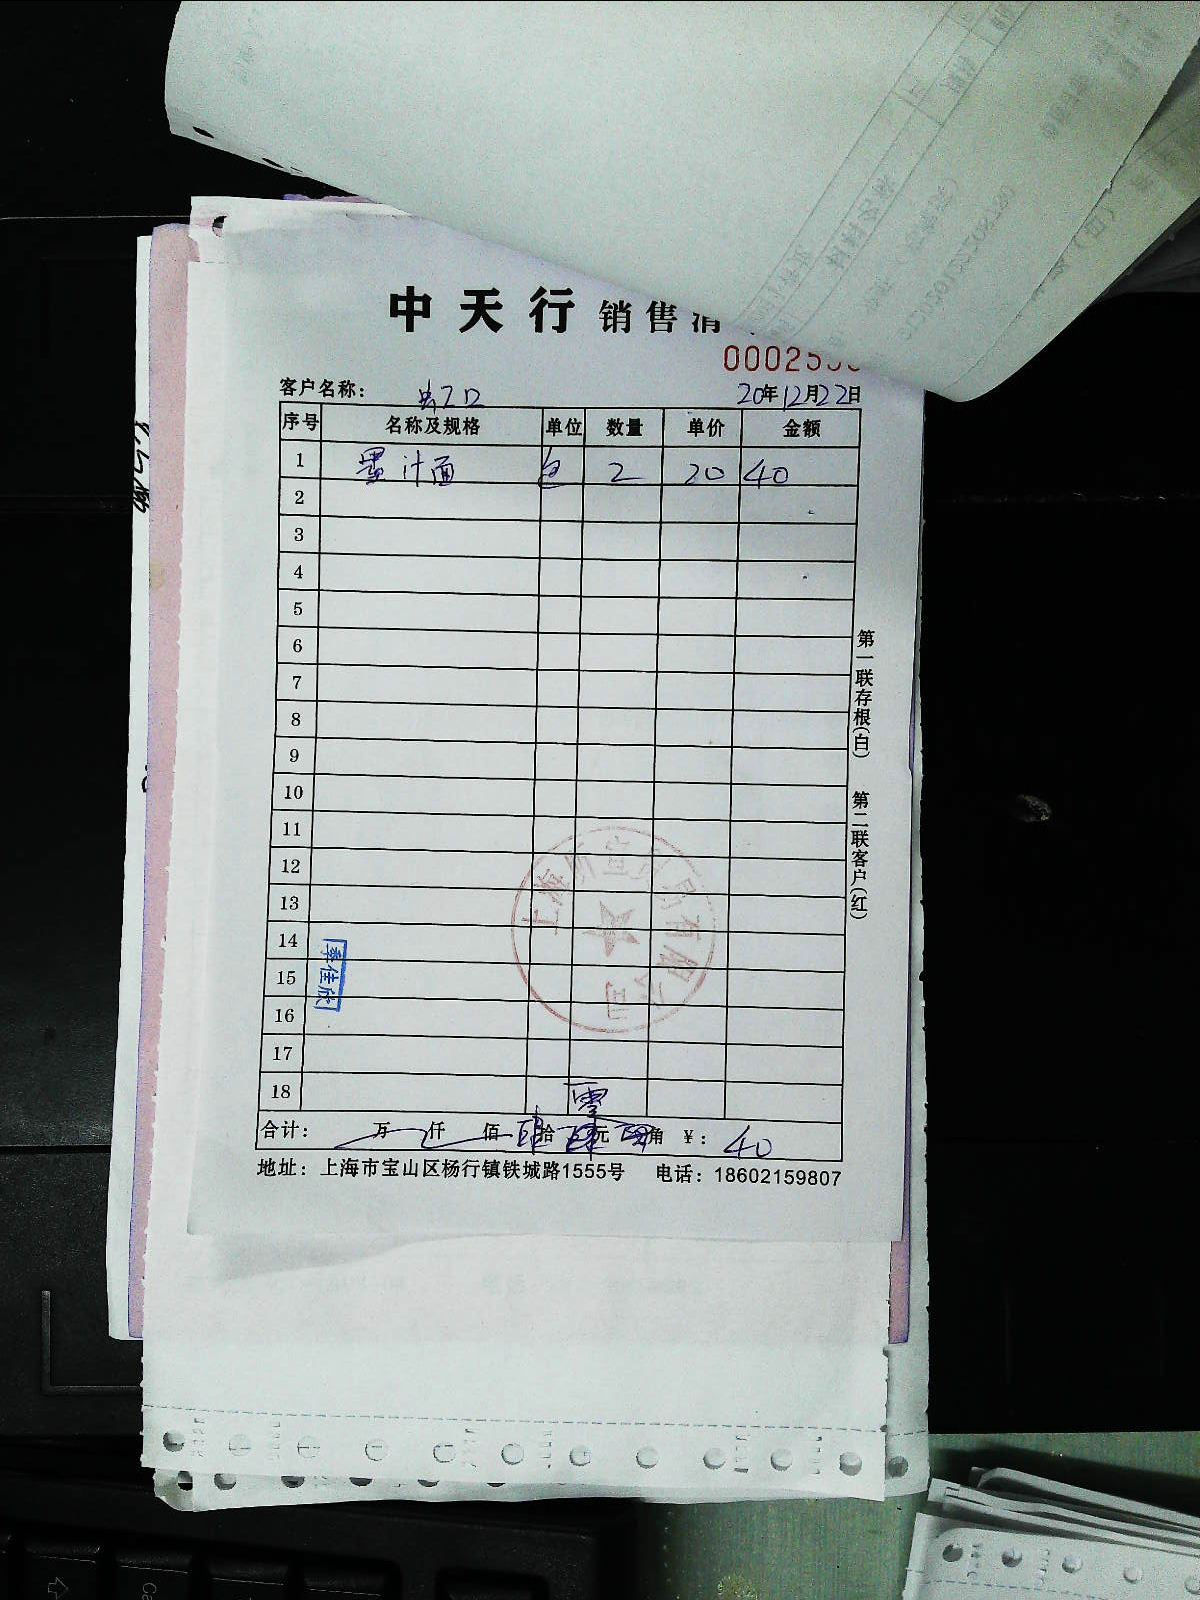 中天行 销售清
00025
客户名称： 虹口 20年12月22日
序号 名称及规格 单位 数量 单价 金额
1 墨汁面 包 2 20 40
2
3
4
5
6
7
8
9
10
11
12
13
14
15
16
17
18
季佳欣
上海 有限公司
零
合计： 万 仟 佰 肆拾 元 角 ￥： 40
地址：上海市宝山区杨行镇铁城路1555号 电话：18602159807
第一联存根(白) 第二联客户(红)